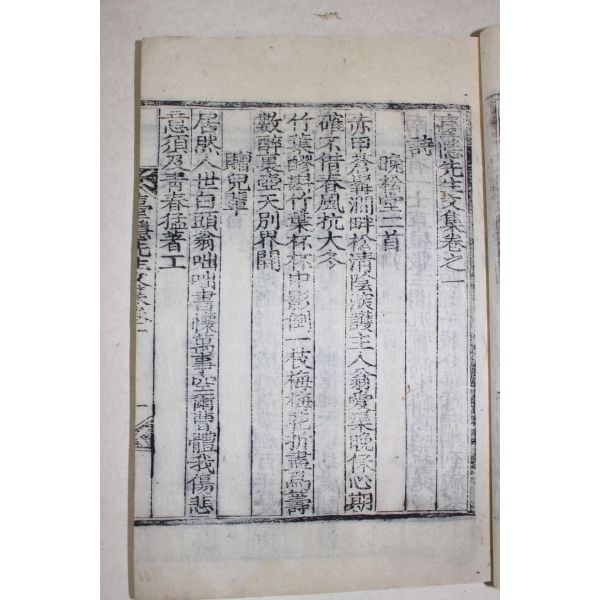 臺隱先生文集卷之一
詩
晩松堂二首
赤甲蒼髯澗畔松清陰深護主人翁愛渠晩保心期
確不借春風抗大冬
竹葉醪斟竹葉杯杯中影倒一枝梅梅花折盡爲籌
數醉裏壺天別界開
贈兒輩
居然人世白頭翁咄咄書懷萬事空爾曹體我傷悲
意須及靑春猛著工
隱先生文集卷之一